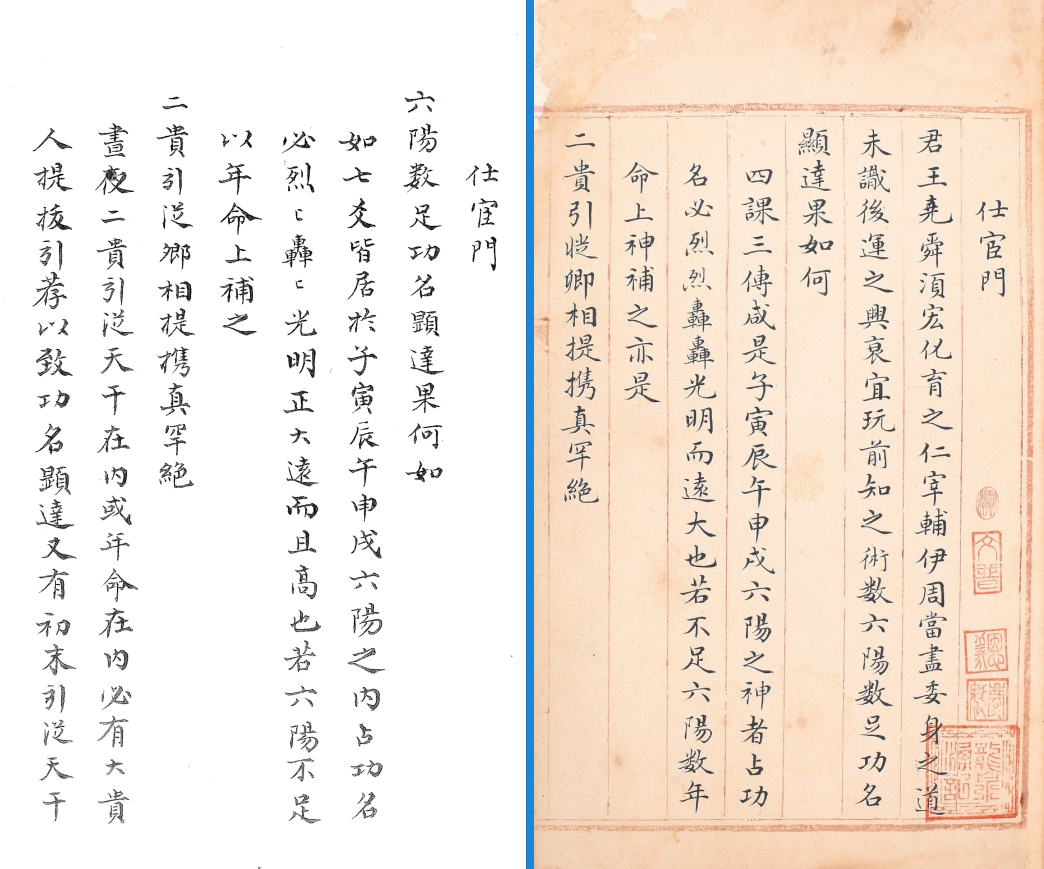 仕宦門
六陽数足功名顕達果何如
如七爻皆居於子寅辰午申戌六陽之内占功名
必烈〻轟〻光明正大遠而且高也若六陽不足
以年命上補之
二貴引従鄉相提携真罕絶
晝夜二貴引従天干在内或年命在内必有大貴
人提拔引荐以致功名顕達又有初末引従天干
仕宦門
君王堯舜須宏化育之仁宰輔伊周當盡委身之道
未識後運之興衰宜玩前知之術数六陽数足功名
顯達果如何
四課三傳咸是子寅辰午申戌六陽之神者占功
名必烈烈轟轟光明而遠大也若不足六陽數年
命上神補之亦是
二貴引從卿相提携真罕絶